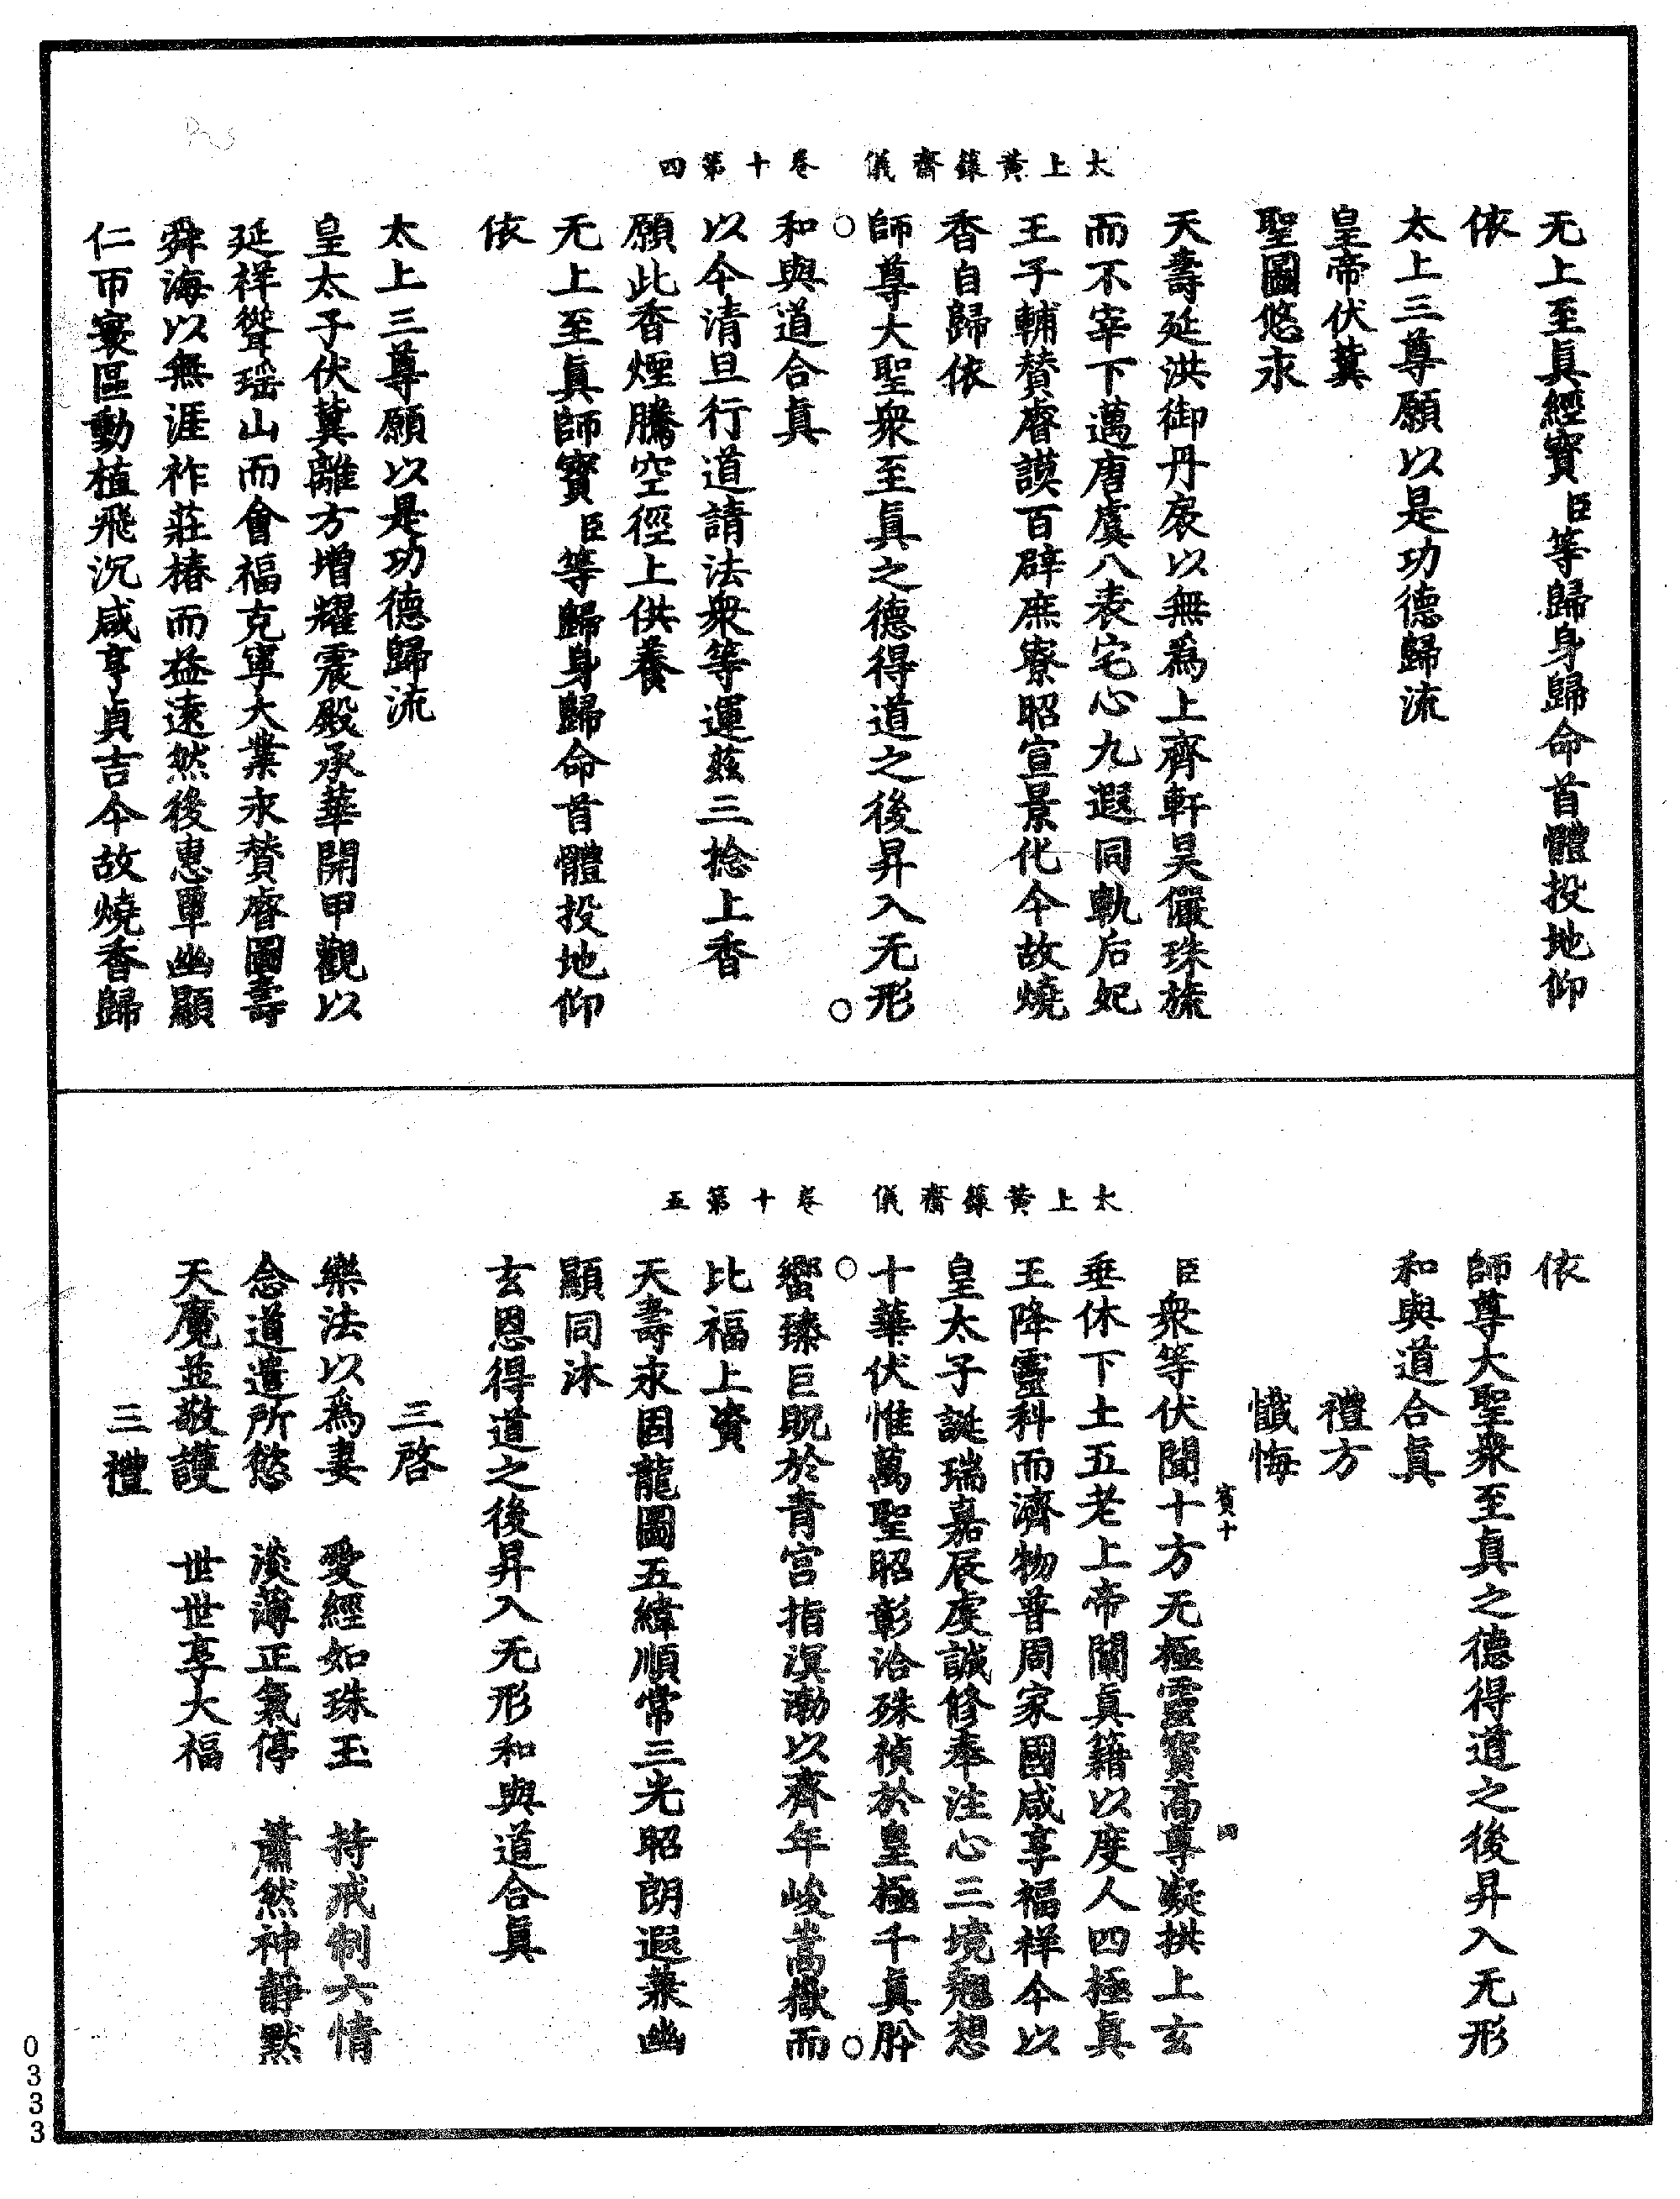 太上黃籙齋儀　卷十　第四
无上至眞經寶臣等歸身歸命首體投地仰
依
太上三尊願以是功德歸流
皇帝伏冀
聖圖悠永
天壽延洪御丹扆以無爲上齊軒昊儼珠旒
而不宰下邁唐虞八表宅心九遐同軌后妃
王子輔贊睿謨百辟庶寮昭宣景化今故燒
香自歸依
師尊大聖衆至眞之德得道之後昇入无形
和與道合眞
以今清旦行道請法衆等運茲三捻上香
願此香煙騰空徑上供養
无上至眞師寶臣等歸身歸命首體投地仰
依
太上三尊願以是功德歸流
皇太子伏冀離方增耀震殿承華開甲觀以
延祥聳瑶山而會福克寧大業永贊睿圖壽
舜海以無涯祚莊椿而益遠然後惠覃幽顯
仁帀寰區動植飛沉咸亨貞吉今故燒香歸
太上黃籙齋儀　卷十　第五
依
師尊大聖衆至眞之德得道之後昇入无形
和與道合眞
禮方
懺悔
賓十　四
臣衆等伏聞十方无極靈寶高尊凝拱上玄
垂休下土五老上帝闡眞籍以度人四極眞
王降靈科而濟物普周家國咸享福祥今以
皇太子誕瑞嘉辰虔誠修奉注心三境翹想
十華伏惟萬聖昭彰洽殊禎於皇極千眞肸
蠁臻巨貺於青宮指溟渤以齊年峻嵩嶽而
比福上資
天壽永固龍圖五緯順常三光昭朗遐兼幽
顯同沐
玄恩得道之後昇入无形和與道合眞
三啓
樂法以爲妻　愛經如珠玉　持戒制六情
念道遣所慾　淡薄正氣停　蕭然神靜默
天魔並敬護　世世享大福
三禮
0333